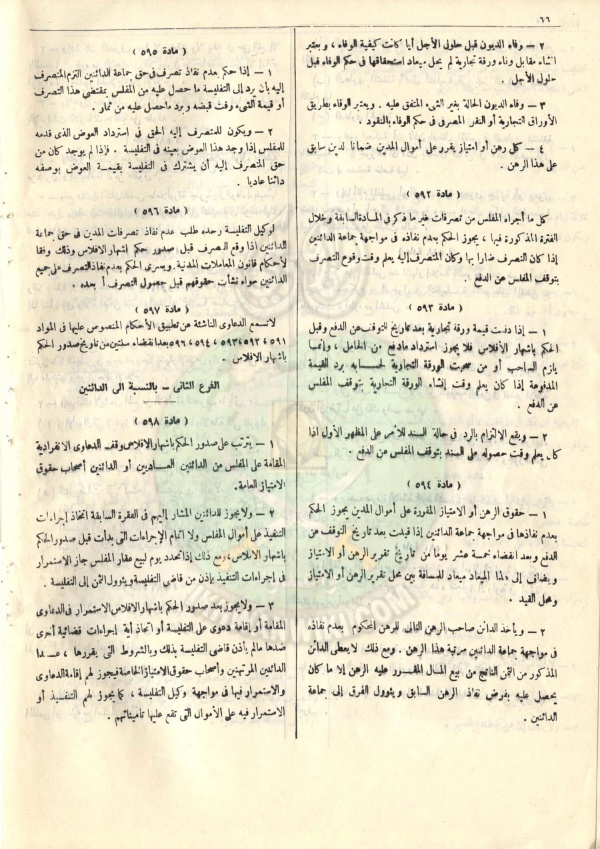 ٦٦
٢ — وفاء الديون قبل حلول الأجل أيا كانت كيفية الوفاء ، ويعتبر
انشاء مقابل وفاء ورقة تجارية لم يحل ميعاد استحقاقها في حكم الوفاء قبل
حلول الأجل .
٣ — وفاء الديون الحالة بغير الشىء المتفق عليه . ويعتبر الوفاء بطريق
الأوراق التجارية أو النقل المصرفى فى حكم الوفاء بالنقود .
٤ — كل رهن أو امتياز يقرر على أموال المدين ضمانا لدين سابق
على هذا الرهن .
( مادة ٥٩٢ )
كل ما أجراه المفلس من تصرفات غير ما ذكر فى المادة السابقة وخلال
الفترة المذكورة فيها ، يجوز الحكم بعدم نفاذه فى مواجهة جماعة الدائنين
إذا كان التصرف ضارا بها وكان المتصرف إليه يعلم وقت وقوع التصرف
بتوقف المفلس عن الدفع .
( مادة ٥٩٣ )
١ — إذا دفعت قيمة ورقة تجارية بعد تاريخ التوقف عن الدفع وقبل
الحكم باشهار الأفلاس فلا يجوز استرداد مادفع من الحامل ، وإنما
يلزم الساحب أو من سحبت الورقة التجارية لحسابه برد القيمة
المدفوعة إذا كان يعلم وقت إنشاء الورقة التجارية بتوقف المفلس
عن الدفع .
٢ — ويقع الالتزام بالرد فى حالة السند للأمر على المظهر الأول اذا
كان يعلم وقت حصوله على السند بتوقف المفلس عن الدفع .
( مادة ٥٩٤ )
١ — حقوق الرهن أو الامتياز المقررة على أموال المدين يجوز الحكم
بعدم نفاذها فى مواجهة جماعة الدائنين إذا قيدت بعد تاريخ التوقف عن
الدفع وبعد انقضاء خمسة عشر يوما من تاريخ تقرير الرهن أو الامتياز
ويضاف إلى هذا الميعاد ميعاد للمسافة بين محل تقرير الرهن أو الامتياز
ومحل القيد .
٢ — ويأخذ الدائن صاحب الرهن التالى للرهن المحكوم بعدم نفاذه
فى مواجهة جماعة الدائنين مرتبة هذا الرهن . ومع ذلك لا يعطى الدائن
المذكور من الثمن الناتج من بيع المال المقرر عليه الرهن إلا ما كان
يحصل عليه بفرض نفاذ الرهن السابق ويئوول الفرق إلى جماعة
الدائنين .
( مادة ٥٩٥ )
١ — إذا حكم بعدم نفاذ تصرف فى حق جماعة الدائنين التزم المتصرف
إليه بأن يرد إلى التفليسة ما حصل عليه من المفلس بمقتضى هذا التصرف
أو قيمة الشىء وقت قبضه ويرد ما حصل عليه من ثمار .
٢ — ويكون للمتصرف إليه الحق فى استرداد العوض الذى قدمه
للمفلس إذا وجد هذا العوض بعينه فى التفليسة . فإذا لم يوجد كان من
حق المتصرف إليه أن يشترك فى التفليسة بقيمة العوض بوصفه
دائنا عاديا .
( مادة ٥٩٦ )
لوكيل التفليسة وحده طلب عدم نفاذ تصرفات المدين فى حق جماعة
الدائنين اذا وقع التصرف قبل صدور حكم إشهار الافلاس وذلك وفقا
لأحكام قانون المعاملات المدنية. ويسرى الحكم بعدم نفاذ التصرف على جميع
الدائنين سواء نشأت حقوقهم قبل حصول التصرف أ بعده .
( مادة ٥٩٧ )
لاتسمع الدعاوى الناشئة عن تطبيق الأحكام المنصوص عليها فى المواد
٥٩١ ، ٥٩٢ ، ٥٩٣ ، ٥٩٤ ، ٥٩٦ بعد انقضاء سنتين من تاريخ صدور الحكم
باشهار الافلاس .
الفرع الثانى — بالنسبة الى الدائنين
( مادة ٥٩٨ )
١ — يترتب على صدور الحكم باشهار الافلاس وقف الدعاوى الانفرادية
المقامة على المفلس من الدائنين العاديين أو الدائنين أصحاب حقوق
الامتياز العامة.
٢ — ولا يجوز للدائنين المشار إليهم فى الفقرة السابقة اتخاذ إجراءات
التنفيذ على أموال المفلس ولا اتمام الإجراءات التى بدأت قبل صدور الحكم
باشهار الافلاس، ومع ذلك إذا تحدد يوم لبيع عقار المفلس جاز الاستمرار
فى إجراءات التنفيذ بإذن من قاضى التفليسة ويئوول الثمن إلى التفليسة .
٣ — ولا يجوز بعد صدور الحكم باشهار الافلاس الاستمرار فى الدعاوى
المقامة أو إقامة دعوى على التفليسة أو اتخاذ أية إجراءات قضائية أخرى
ضدها مالم يأذن قاضى التفليسة بذلك وبالشروط التى يقررها ، عدا
الدائنين المرتهنين وأصحاب حقوق الامتياز الخاصة فيجوز لهم إقامة الدعاوى
والاستمرار فيها فى مواجهة وكيل التفليسة ، كما يجوز لهم التنفيذ أو
الاستمرار فيه على الأموال التى تقع عليها تأميناتهم .